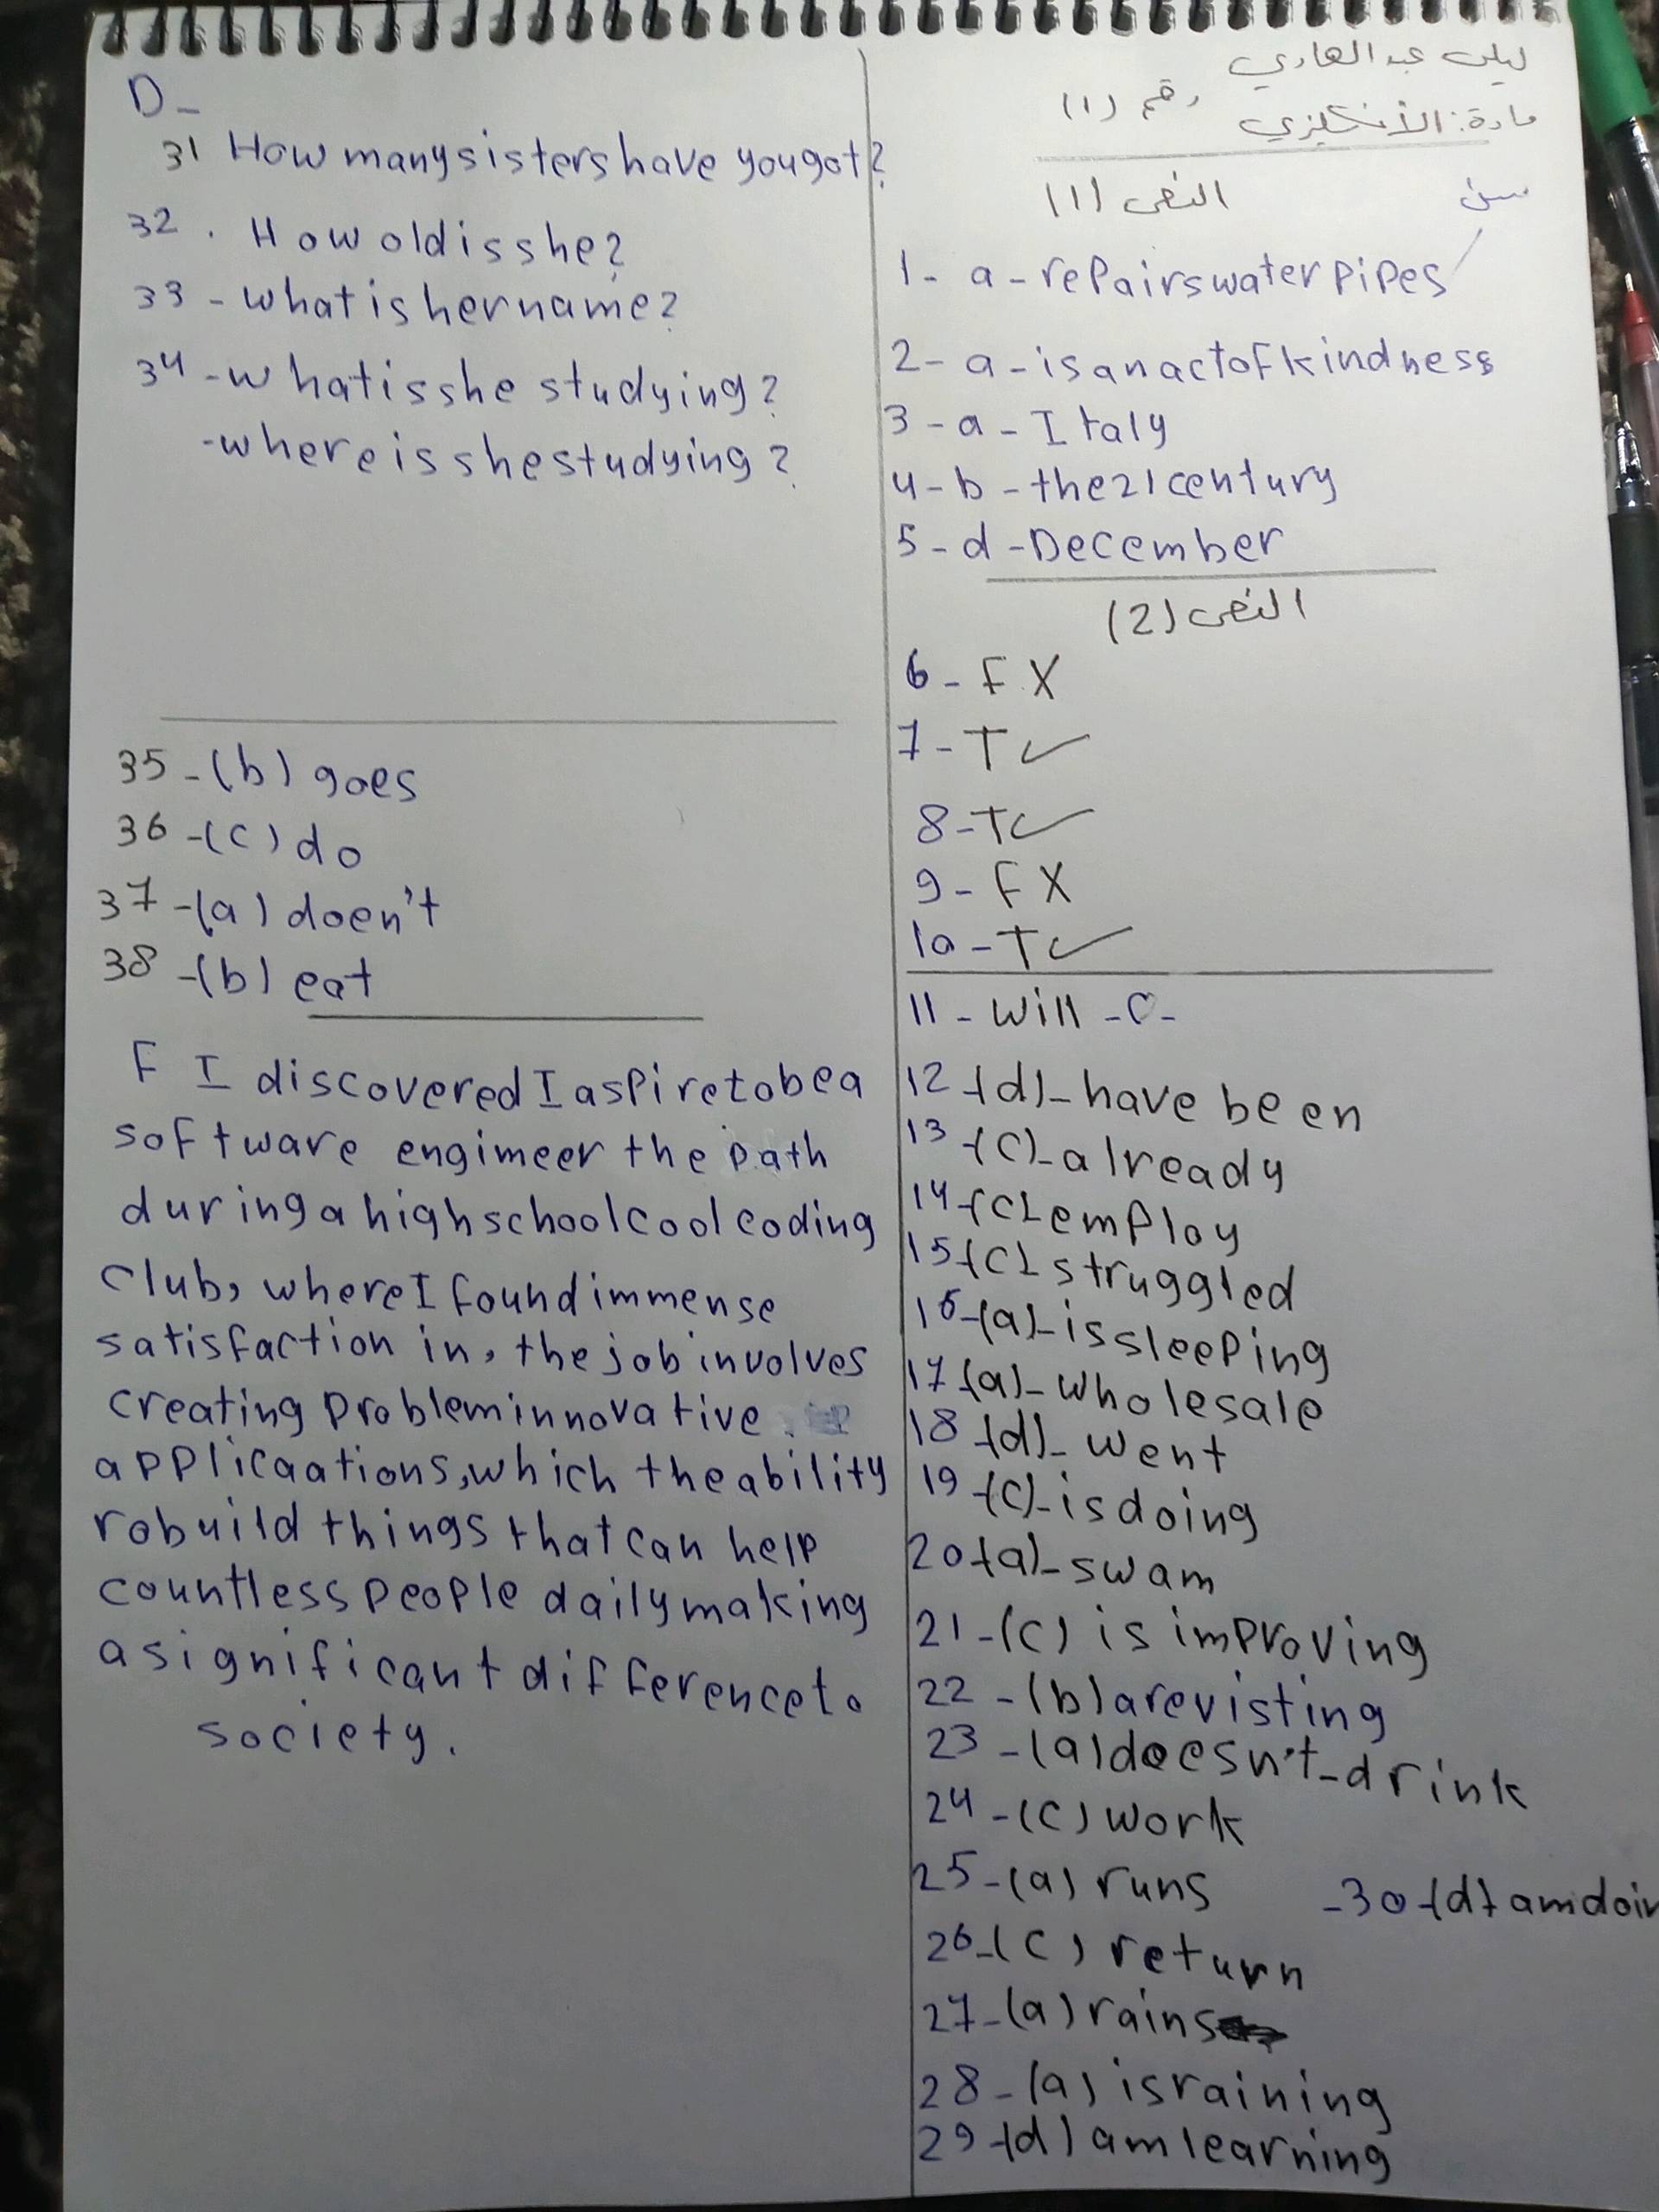 ليلى عبد الهادي
رقم (1)
مادة: الأنكليزي
النص (1)
1- a - repairs water pipes
2- a - is an act of kindness
3 - a - Italy
4 - b - the 21 century
5 - d - December
النص (2)
6 - F X
7 - T ✓
8 - T ✓
9 - F X
10 - T ✓
11 - will - c -
12 -(d)- have been
13 -(c)- already
14 -(c)- employ
15 -(c)- struggled
16 -(a)- is sleeping
17 -(a)- wholesale
18 -(d)- went
19 -(c)- is doing
20 -(a)- swam
21 -(c) is improving
22 -(b) are visting
23 -(a) doesn't - drink
24 -(c) work
25 -(a) runs
26 -(c) return
27 -(a) rains
28 -(a) is raining
29 -(d) am learning
-30 -(d) am doin
D -
31 How many sisters have you got?
32 . How old is she?
33 - what is her name?
34 - what is she studying?
- where is she studying?
35 -(b) goes
36 -(c) do
37 -(a) doen't
38 -(b) eat
F I discovered I aspire to be a
software engimeer the path
during a high school cool coding
club, where I found immense
satisfaction in, the job involves
creating problem innovative.
applicaations, which the ability
robuild things that can help
countless people daily making
a significant difference to
society.